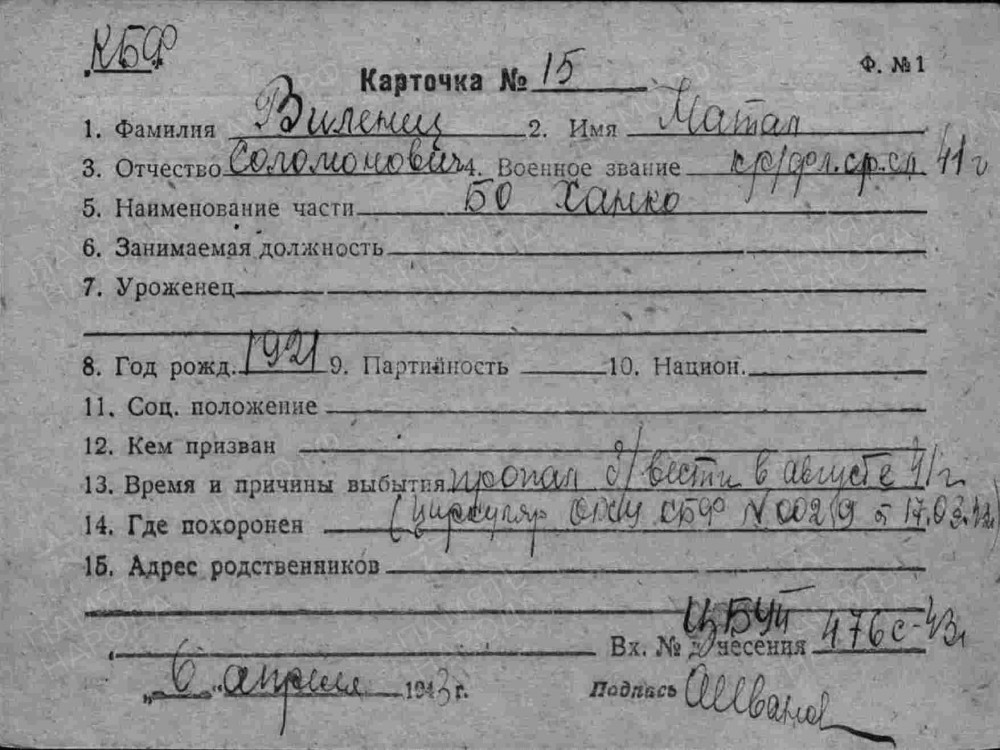 КБФ
Карточка № 15 Ф. №1
1. Фамилия Вилениц 2. Имя Матал
3. Отчество Соломонович 4. Военное звание кр/фл.ср.сл 41 г
5. Наименование части БО Ханко
6. Занимаемая должность
7. Уроженец
8. Год рожд. 1921 9. Партийность 10. Национ.
11. Соц. положение
12. Кем призван
13. Время и причины выбытия пропал б/вести в августе 41 г.
14. Где похоронен (циркуляр КБФ № 00219 от 17.03.42)
15. Адрес родственников
ЦБУП
Вх. № донесения 476с-43г
„6" апреля 1943 г. Подпись